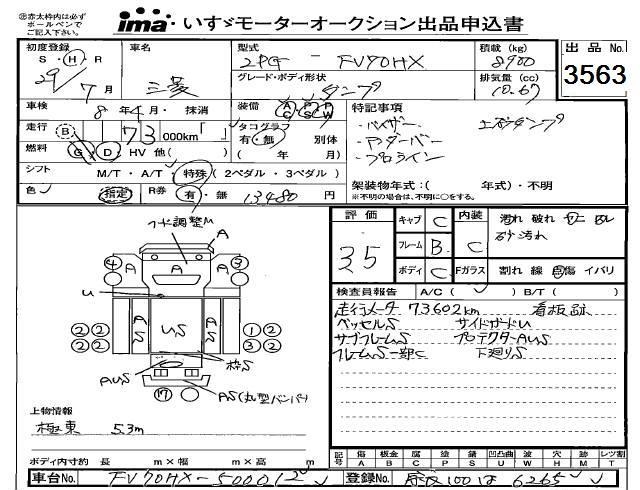 ※赤太枠内は必ず
ボールペンで
ご記入下さい。
ima いすゞモーターオークション出品申込書
初度登録 車名 型式 積載(kg) 出品No.
S・H・R 三菱 2PG - FV70HX 8900 3563
29年7月 グレード・ボディ形状 排気量(cc)
ダンプ 10.67
車検 8年4月・抹消 装備 AC PS PW 特記事項
走行 B 73 000km「 」 タコグラフ 別体 ・バイザー
燃料 G・D・HV 他( ) 有・無 ( 年 月) ・アンダーバー
シフト M/T・A/T・特殊(2ペダル・3ペダル) ・プロライン
色 指定 R券 有・無 13480円 架装物年式:( 年式)・不明
※不明の場合は、不明に○をする。
フード調整U
A
A A
④ ③
U
② ② US ① ②
② ② ② ②
AS AS
枠S
AUS
⑰ AS(丸型バンパー)
上物情報
極東 5.3m
ボディ内寸約 長 m×幅 m×高 m
評価 キャブ C 内装 汚れ 破れ
35 フレーム B C 砂汚れ
ボディ C Fガラス 割れ 線 傷 イバリ
検査員報告 A/C( ) B/T( )
走行メータ 73602km 看板跡
ベッセルS サイドガードU
サブフレームS プロテクターAUS
フレームS一部C 下廻りS
記号 傷 板金 腐 塗 錆 凹凸曲 巣 割 穴 跡 レツ割
A B C P S U W X H M T
車台No. FV70HX-500012 登録No. 100は6265